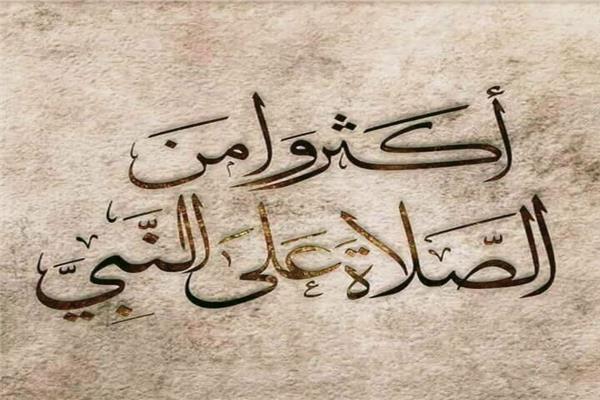 أكثروا من
الصَّلاةَ عَلىَ النَّبِيَّ